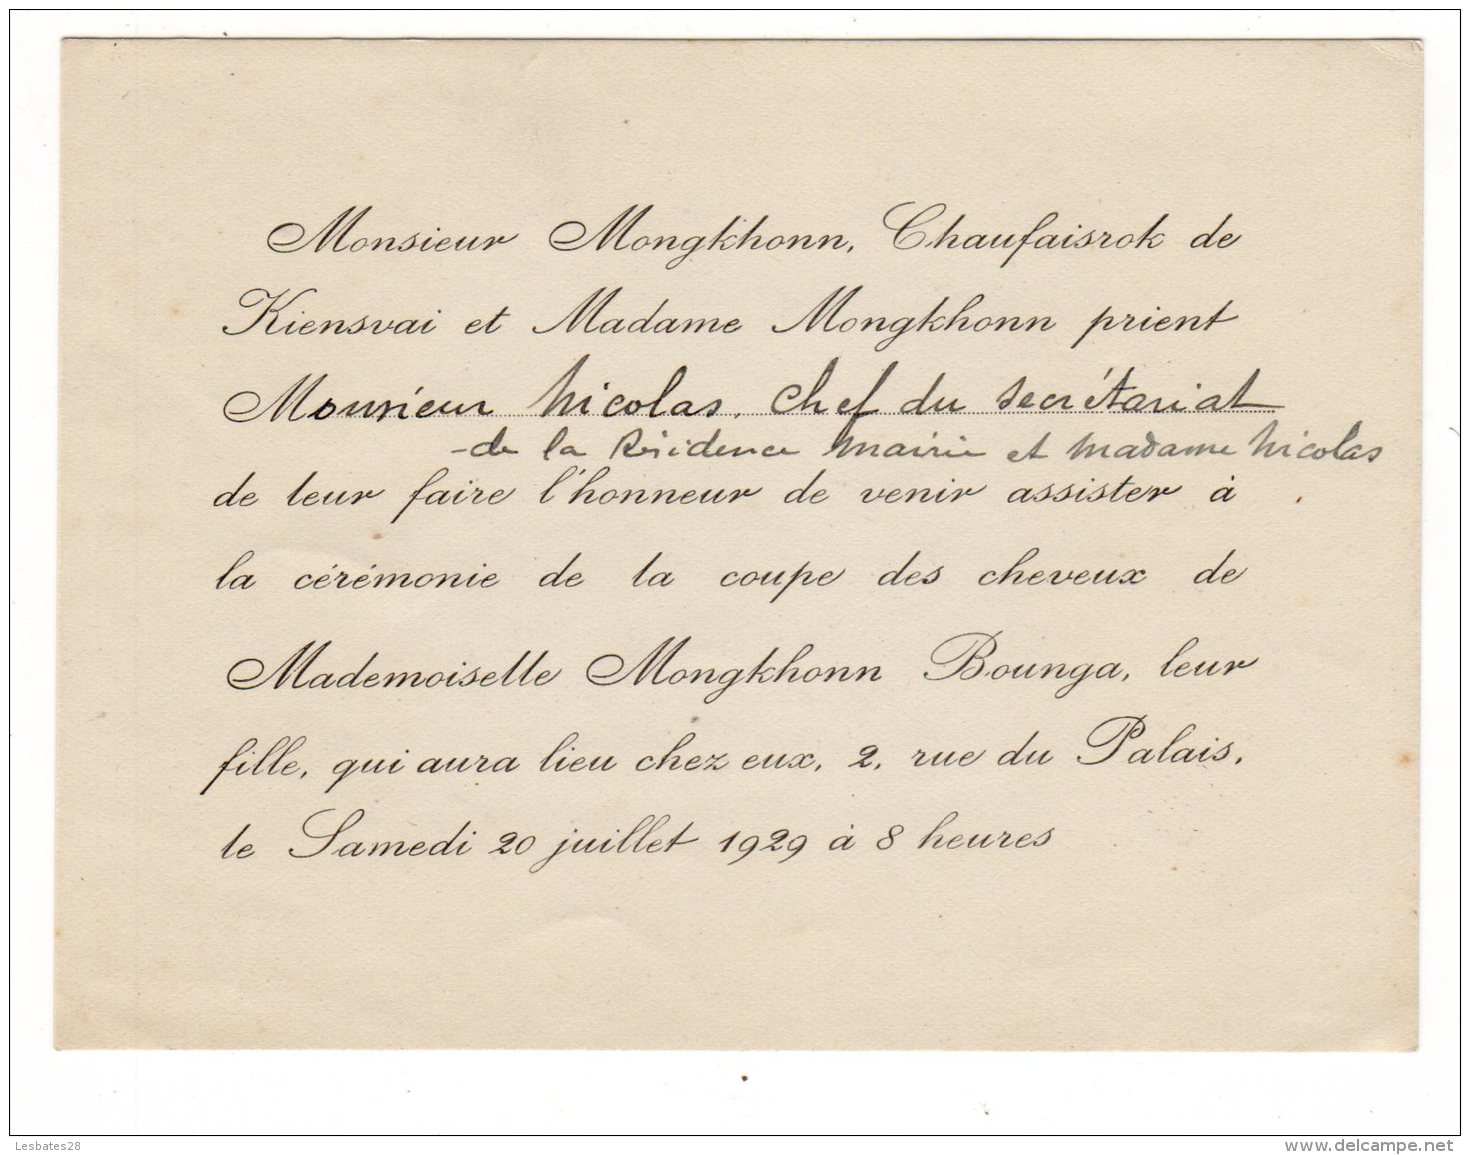 Monsieur Mongkhonn, Chaufaisrok de
Kiensvai et Madame Mongkhonn prient
Monsieur Nicolas, Chef du Secrétariat
- de la Résidence Mairie et Madame Nicolas
de leur faire l'honneur de venir assister à
la cérémonie de la coupe des cheveux de
Mademoiselle Mongkhonn Bounga, leur
fille, qui aura lieu chez eux, 2, rue du Palais,
le Samedi 20 juillet 1929 à 8 heures
Lesbates28
www.delcampe.net